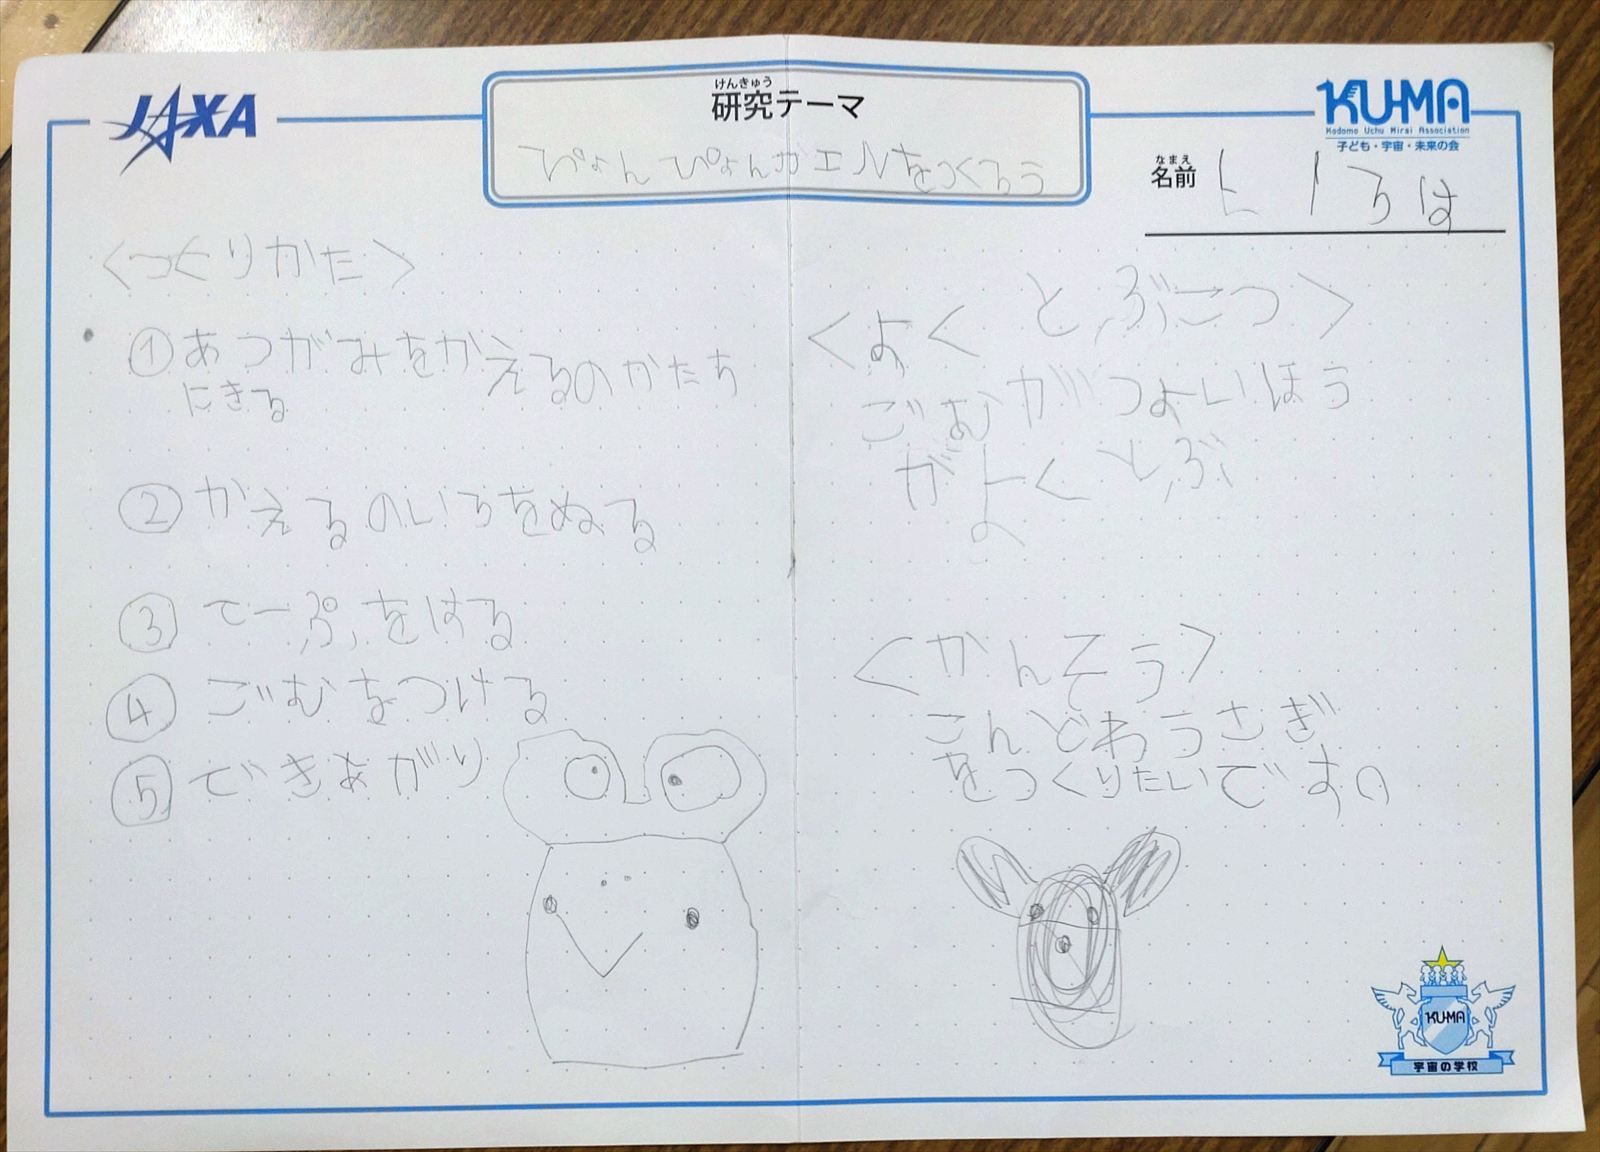 JAXA
けんきゅう
研究テーマ
ぴょんぴょんカエルをつくろう
KU-MA
Kodomo Uchu Mirai Association
子ども・宇宙・未来の会
なまえ
名前
いろは
<つくりかた>
①あつがみをかえるのかたち
にきる
②かえるのいろをぬる
③てーぷをはる
④ごむをつける
⑤できあがり
<よくとぶこつ>
ごむがつよいほう
がよくとぶ
<かんそう>
こんどわうさぎ
をつくりたいです。
KU-MA
宇宙の学校